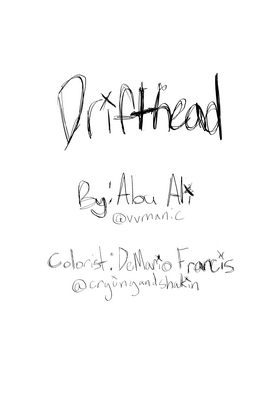 Drifthead
By: Abu Ali
@vvmanic
Colorist: DeMario Francis
@cryingandshakin